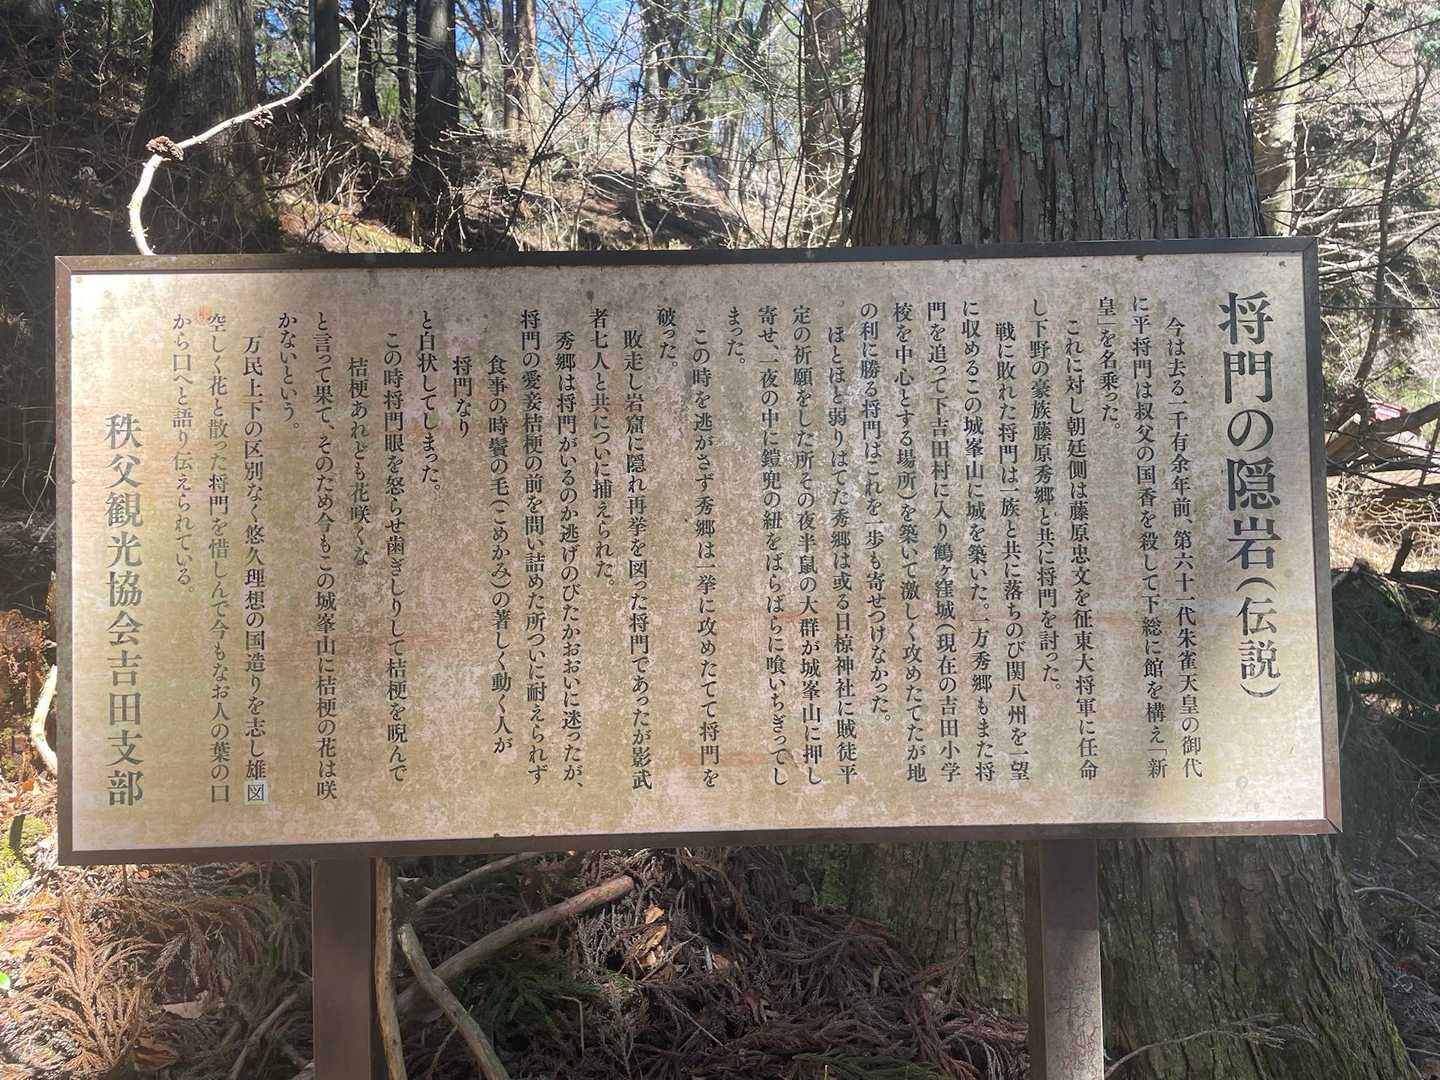 将門の隠岩(伝説)
今は去る一千有余年前、第六十一代朱雀天皇の御代
に平将門は叔父の国香を殺して下総に館を構え「新
皇」を名乗った。
これに対し朝廷側は藤原忠文を征東大将軍に任命
し下野の豪族藤原秀郷と共に将門を討った。
戦に敗れた将門は一族と共に落ちのび関八州を一望
に収めるこの城峯山に城を築いた。一方秀郷もまた将
門を追って下吉田村に入り鶴ヶ窪城(現在の吉田小学
校を中心とする場所)を築いて激しく攻めたてたが地
の利に勝る将門はこれを一歩も寄せつけなかった。
ほとほと弱りはてた秀郷は或る日椋神社に賊徒平
定の祈願をした所その夜半鼠の大群が城峯山に押し
寄せ、一夜の中に鎧兜の紐をばらばらに喰いちぎってし
まった。
この時を逃がさず秀郷は一挙に攻めたてて将門を
破った。
敗走し岩窟に隠れ再挙を図った将門であったが影武
者七人と共についに捕えられた。
秀郷は将門がいるのか逃げのびたかおおいに迷ったが、
将門の愛妾桔梗の前を問い詰めた所ついに耐えられず
食事の時鬢の毛(こめかみ)の著しく動く人が
将門なり
と白状してしまった。
この時将門眼を怒らせ歯ぎしりして桔梗を睨んで
桔梗あれども花咲くな
と言って果て、そのため今もこの城峯山に桔梗の花は咲
かないという。
万民上下の区別なく悠久理想の国造りを志し雄図
空しく花と散った将門を惜しんで今もなお人の葉の口
から口へと語り伝えられている。
秩父観光協会吉田支部